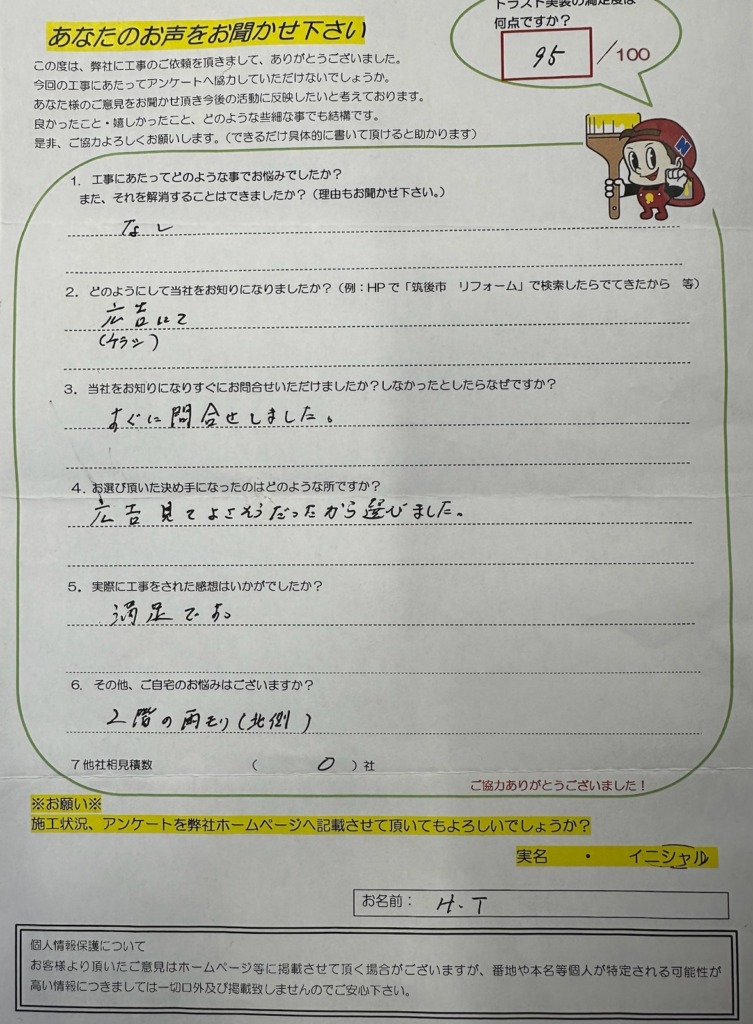 あなたのお声をお聞かせ下さい
トラスト実装の満足度は
何点ですか？
95 /100
この度は、弊社に工事のご依頼を頂きまして、ありがとうございました。
今回の工事にあたってアンケートへ協力していただけないでしょうか。
あなた様のご意見をお聞かせ頂き今後の活動に反映したいと考えております。
良かったこと・嬉しかったこと、どのような些細な事でも結構です。
是非、ご協力よろしくお願いします。（できるだけ具体的に書いて頂けると助かります）
1. 工事にあたってどのような事でお悩みでしたか？
また、それを解消することはできましたか？（理由もお聞かせ下さい。）
なし
2. どのようにして当社をお知りになりましたか？（例：HPで「筑後市 リフォーム」で検索したらでてきたから 等）
広告にて
(チラシ)
3. 当社をお知りになりすぐにお問合せいただけましたか？しなかったとしたらなぜですか？
すぐに問合せしました。
4. お選び頂いた決め手になったのはどのような所ですか？
広告見てよさそうだったから選びました。
5. 実際に工事をされた感想はいかがでしたか？
満足です。
6. その他、ご自宅のお悩みはございますか？
2階の雨モリ(北側)
7 他社相見積数 （ 0 ）社
ご協力ありがとうございました！
※お願い※
施工状況、アンケートを弊社ホームページへ記載させて頂いてもよろしいでしょうか？
実名 ・ イニシャル
お名前： H.T
個人情報保護について
お客様より頂いたご意見はホームページ等に掲載させて頂く場合がございますが、番地や本名等個人が特定される可能性が
高い情報につきましては一切口外及び掲載致しませんのでご安心下さい。